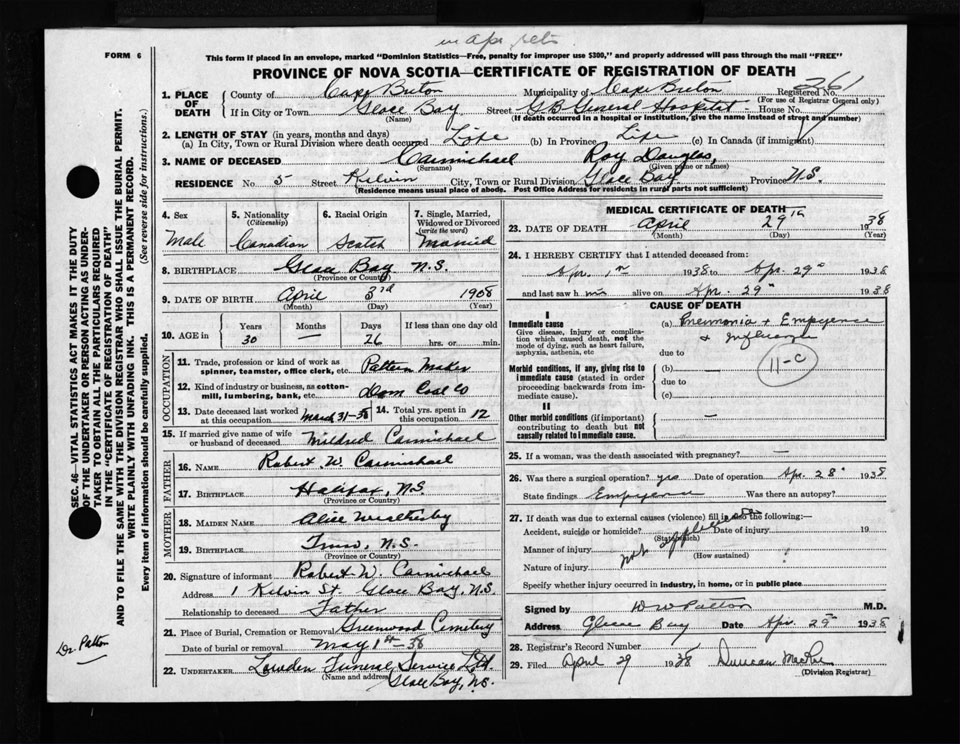 FORM 6
This form if placed in an envelope, marked "Dominion Statistics—Free, penalty for improper use $300," and properly addressed will pass through the mail "FREE"
PROVINCE OF NOVA SCOTIA—CERTIFICATE OF REGISTRATION OF DEATH
Registered No. 361
(For use of Registrar General only)
1. PLACE OF DEATH County of Cape Breton Municipality of Cape Breton
If in City or Town Glace Bay Street G.B. General Hospital House No.
(Name) (If death occurred in a hospital or institution, give the name instead of street and number)
2. LENGTH OF STAY (in years, months and days)
(a) In City, Town or Rural Division where death occurred Life (b) In Province Life (c) In Canada (if immigrant)
3. NAME OF DECEASED Carmichael Roy Douglas,
(Surname) (Given name or names)
RESIDENCE No 5 Street Kelvin City, Town or Rural Division Glace Bay Province N.S.
(Residence means usual place of abode. Post Office Address for residents in rural parts not sufficient)
4. Sex Male
5. Nationality (Citizenship) Canadian
6. Racial Origin Scotch
7. Single, Married, Widowed or Divorced (write the word) Married
8. BIRTHPLACE Glace Bay N.S.
(Province or Country)
9. DATE OF BIRTH April 3rd 1908
(Month) (Day) (Year)
10. AGE in Years 30 Months — Days 26 If less than one day old hrs. or min.
OCCUPATION
11. Trade, profession or kind of work as spinner, teamster, office clerk, etc. Pattern Maker
12. Kind of industry or business, as cotton-mill, lumbering, bank, etc. Dom Coal Co
13. Date deceased last worked at this occupation March 31-38 14. Total yrs. spent in this occupation 12
15. If married give name of wife or husband of deceased Mildred Carmichael
FATHER
16. NAME Robert W. Carmichael
17. BIRTHPLACE Halifax, N.S.
(Province or Country)
MOTHER
18. MAIDEN NAME Alice Wetherby
19. BIRTHPLACE Truro, N.S.
(Province or Country)
20. Signature of informant Robert W. Carmichael
Address 1 Kelvin St. Glace Bay, N.S.
Relationship to deceased Father
21. Place of Burial, Cremation or Removal Greenwood Cemetery
Date of burial or removal May 1st-38
22. UNDERTAKER Lowden Funeral Service Ltd.
(Name and address) Glace Bay, N.S.
MEDICAL CERTIFICATE OF DEATH
23. DATE OF DEATH April 29th 1938
(Month) (Day) (Year)
24. I HEREBY CERTIFY that I attended deceased from:
Apr. 1st 1938 to Apr. 29th 1938
and last saw him alive on Apr. 29th 1938
CAUSE OF DEATH
I
Immediate cause
Give disease, injury or complication which caused death, not the mode of dying, such as heart failure, asphyxia, asthenia, etc
(a) Pneumonia + Empyema
+ Influenza
due to
11-C
Morbid conditions, if any, giving rise to immediate cause (stated in order proceeding backwards from immediate cause).
(b) —
due to
(c)
II
Other morbid conditions (if important) contributing to death but not causally related to immediate cause.
—
25. If a woman, was the death associated with pregnancy? —
26. Was there a surgical operation? yes Date of operation Apr. 28th 1938
State findings Empyema Was there an autopsy?
27. If death was due to external causes (violence) fill in also the following:—
Accident, suicide or homicide? Date of injury 19
(State which)
Manner of injury not applicable
(How sustained)
Nature of injury
Specify whether injury occurred in industry, in home, or in public place
Signed by D W Patton M.D.
Address Glace Bay Date Apr. 29th 1938
28. Registrar's Record Number
29. Filed April 29 1938 Duncan MacRae
(Division Registrar)
SEC. 46—VITAL STATISTICS ACT MAKES IT THE DUTY
OF THE UNDERTAKER OR PERSON ACTING AS UNDER-
TAKER TO OBTAIN ALL THE PARTICULARS REQUIRED
IN THE "CERTIFICATE OF REGISTRATION OF DEATH"
AND TO FILE THE SAME WITH THE DIVISION REGISTRAR WHO SHALL ISSUE THE BURIAL PERMIT.
WRITE PLAINLY WITH UNFADING INK. THIS IS A PERMANENT RECORD.
Every item of information should be carefully supplied. (See reverse side for instructions.)
Dr Patton